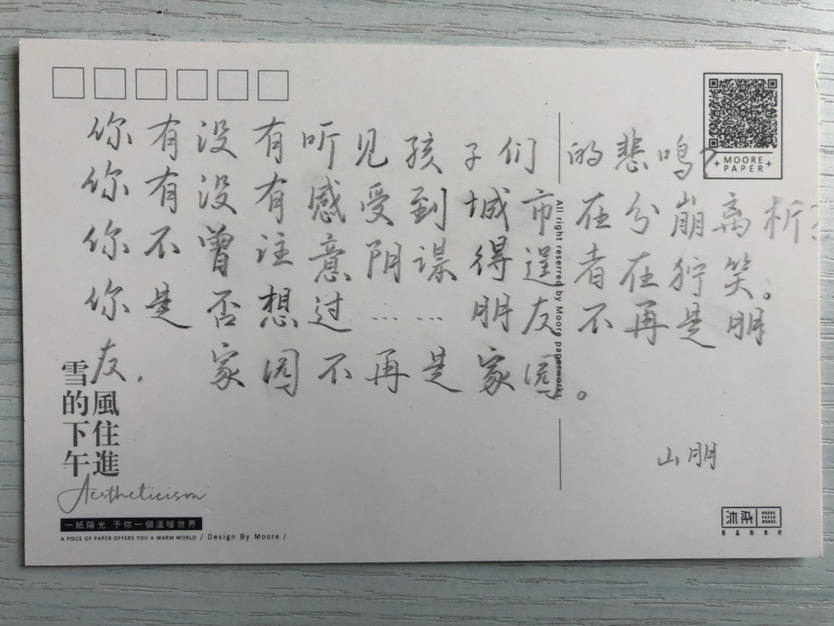 你有没有听见孩子们的悲鸣?
你有没有感受到城市在分崩离析?
你不曾注意阴谋得逞者在狞笑。
你是否想过……朋友不再是朋
友。家园不再是家园。
山朋
MOORE
PAPER
All right reserred by Moore paperworks
風住進
雪的下午
Aestheticism
一紙陽光 予你一個溫暖世界
A PIECE OF PAPER OFFERS YOU A WARM WORLD / Design By Moore /
沐染
MOORE
PAPER
WORKS